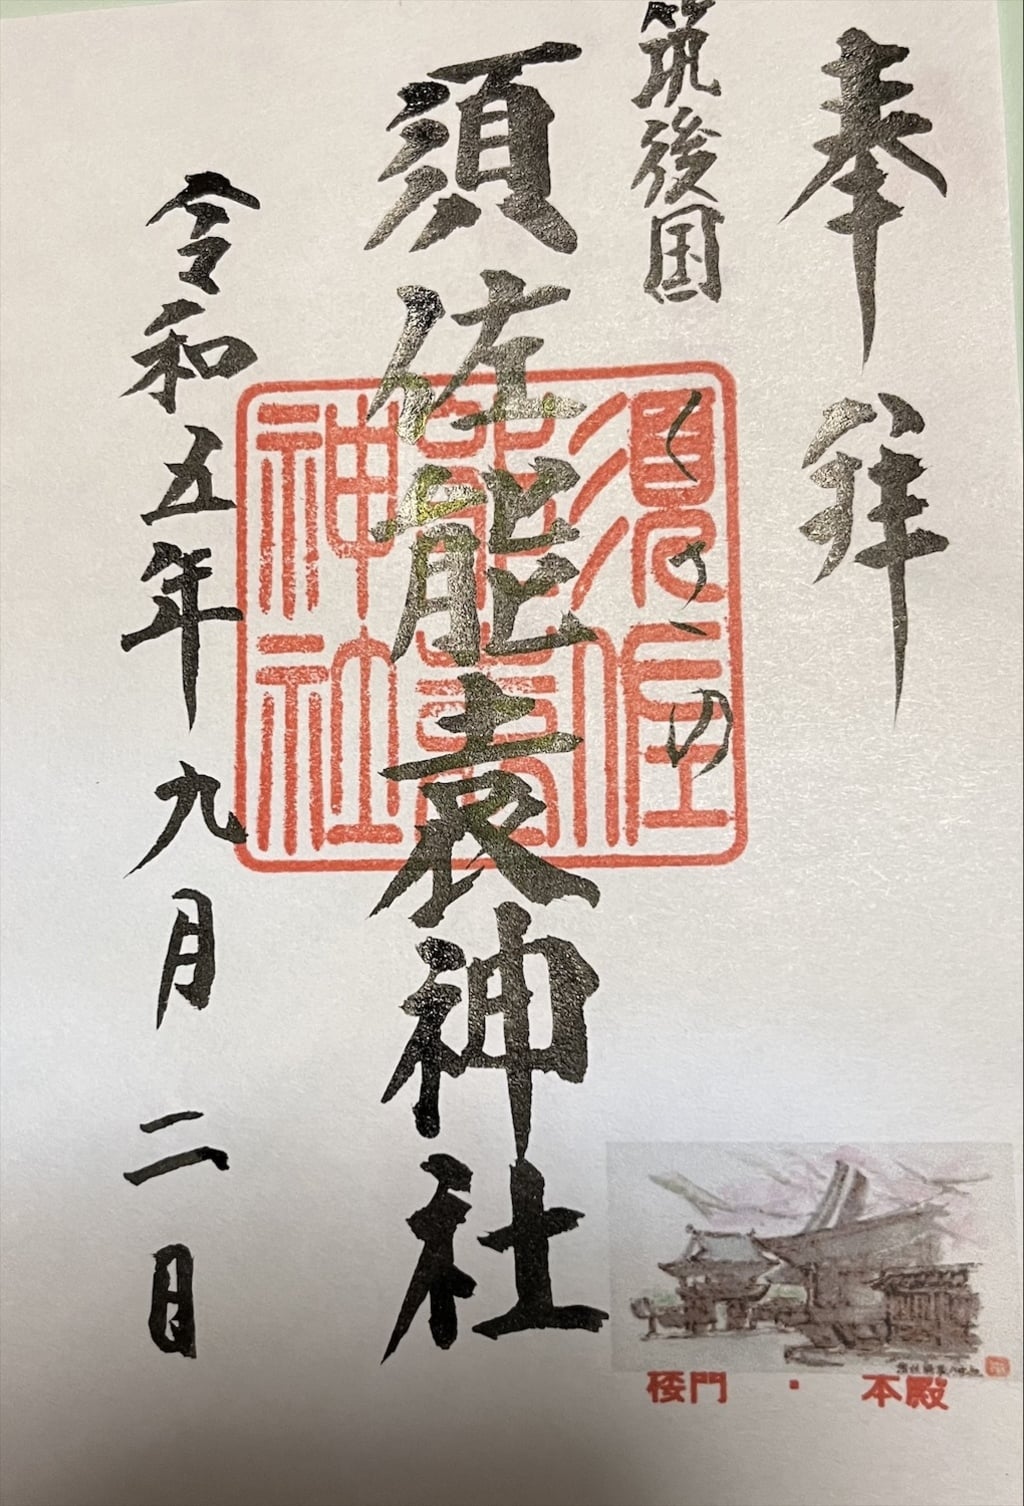 奉拝
筑後国
くさの
須佐能袁神社
令和五年九月二日
須佐
能袁
神社
楼門・本殿